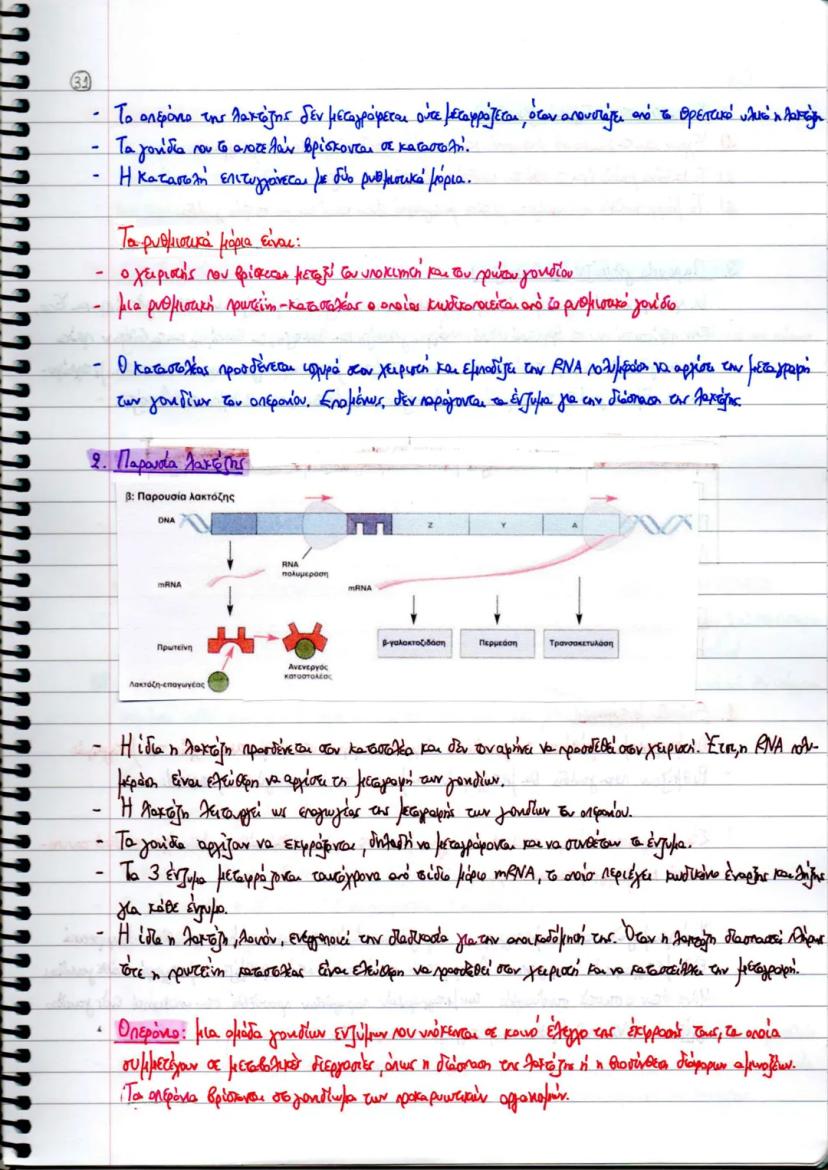 31
- Το οπερόνιο της λακτόζης δεν μεταγράφεται ούτε μεταφράζεται, όταν απουσιάζει από το θρεπτικό υλικό η λακτόζη
- Τα γονίδια που το αποτελούν βρίσκονται σε καταστολή.
- Η καταστολή επιτυγχάνεται με δύο ρυθμιστικά μόρια.
Τα ρυθμιστικά μόρια είναι:
- ο χειριστής που βρίσκεται μεταξύ του υποκινητή και του πρώτου γονιδίου
- μια ρυθμιστική πρωτεΐνη-καταστολέας ο οποίος κωδικοποιείται από το ρυθμιστικό γονίδιο
- Ο καταστολέας προσδένεται ισχυρά στον χειριστή και εμποδίζει την RNA πολυμεράση να αρχίσει την μεταγραφή
των γονιδίων του οπερονίου. Επομένως, δεν παράγονται τα ένζυμα για την διάσπαση της λακτόζης.
2. Παρουσία λακτόζης
β: Παρουσία λακτόζης
DNA
Z Y A
RNA
πολυμεράση
mRNA
mRNA
Πρωτεΐνη
β-γαλακτοζιδάση Περμεάση Τρανσακετυλάση
Ανενεργός
καταστολέας
Λακτόζη-επαγωγέας
- Η ίδια η λακτόζη προσδένεται στον καταστολέα και δεν τον αφήνει να προσδεθεί στον χειριστή. Έτσι, η RNA πολυ-
μεράση είναι ελεύθερη να αρχίσει τη μεταγραφή των γονιδίων.
- Η λακτόζη λειτουργεί ως επαγωγέας της μεταγραφής των γονιδίων του οπερονίου.
- Τα γονίδια αρχίζουν να εκφράζονται, δηλαδή να μεταγράφονται και να συνθέτουν τα ένζυμα.
- Τα 3 ένζυμα μεταφράζονται ταυτόχρονα από το ίδιο μόριο mRNA, το οποίο περιέχει κωδικόνιο έναρξης και λήξης
για κάθε ένζυμο.
- Η ίδια η λακτόζη, λοιπόν, ενεργοποιεί την διαδικασία για την αποικοδόμησή της. Όταν η λακτόζη διασπαστεί πλήρως
τότε η πρωτεΐνη καταστολέας είναι ελεύθερη να προσδεθεί στον χειριστή και να καταστείλει την μεταγραφή.
Οπερόνιο: μια ομάδα γονιδίων ενζύμων που υπόκενται σε κοινό έλεγχο της έκφρασής τους, τα οποία
συμμετέχουν σε μεταβολικές διεργασίες, όπως η διάσπαση της λακτόζης ή η βιοσύνθεση διάφορων αμινοξέων.
Τα οπερόνια βρίσκονται στο γονιδίωμα των προκαρυωτικών οργανισμών.